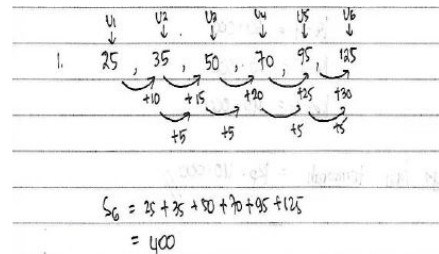 U1 U2 U3 U4 U5 U6
1. 25, 35, 50, 70, 95, 125
+10 +15 +20 +25 +30
+5 +5 +5 +5
S6 = 25 + 35 + 50 + 70 + 95 + 125
= 400